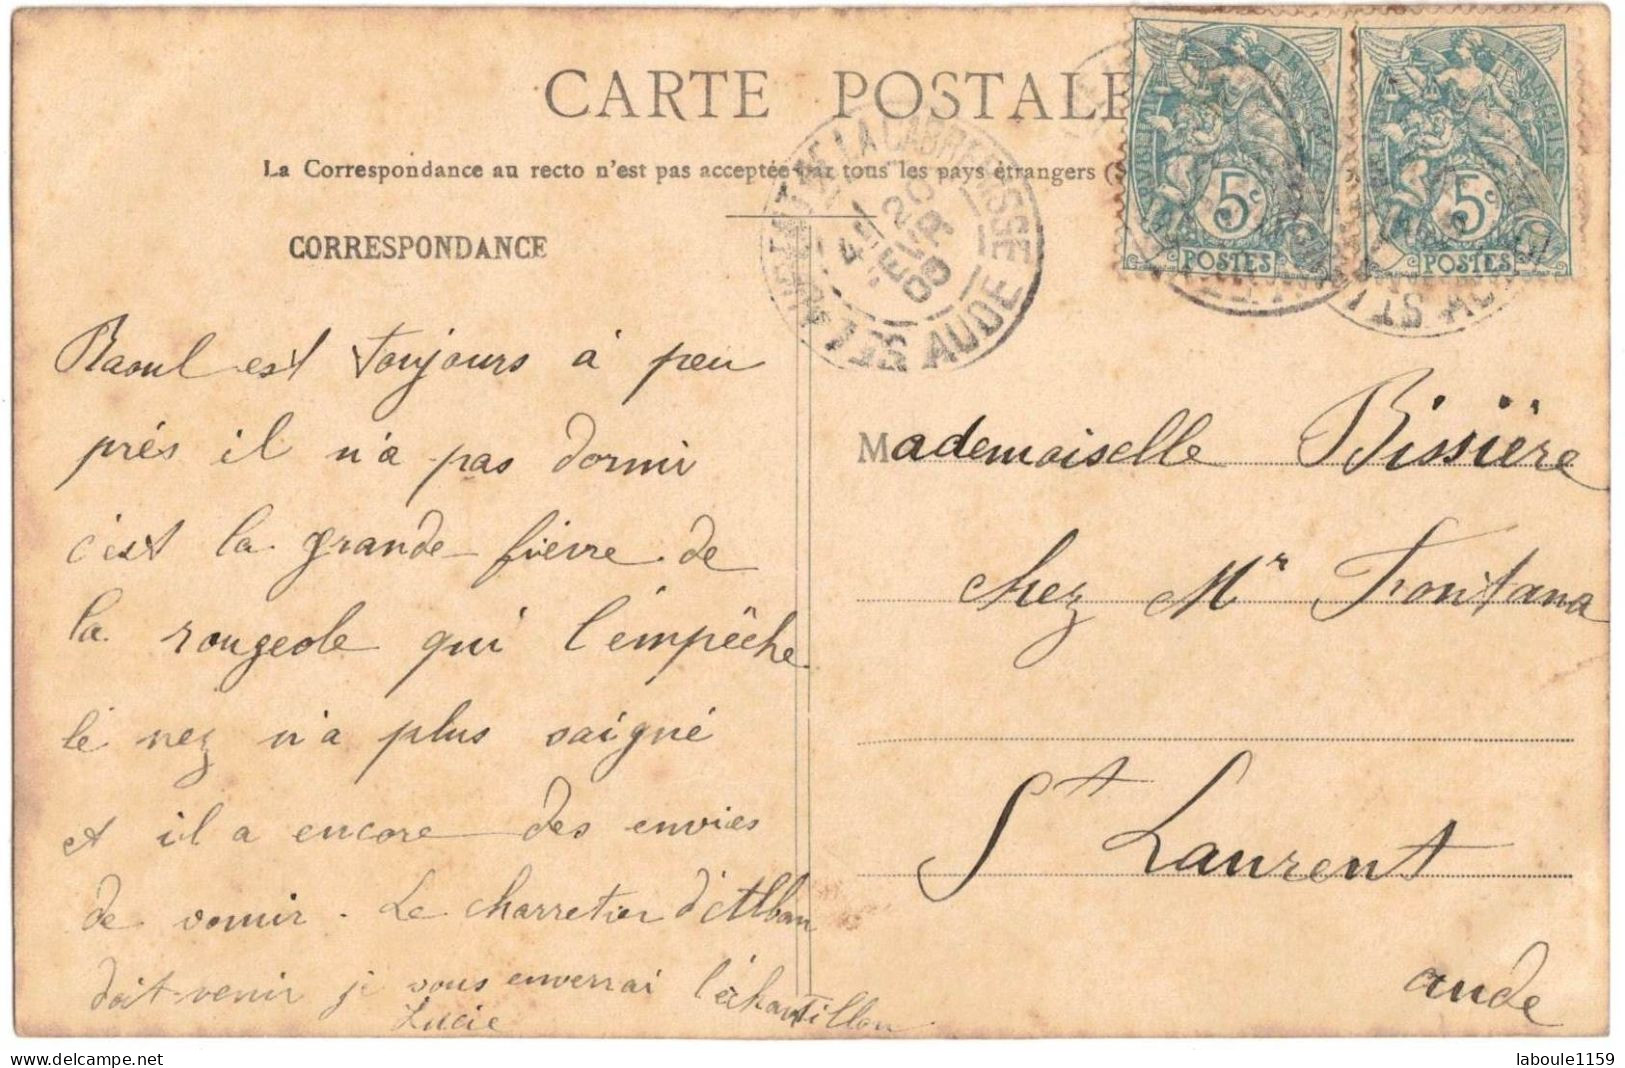 CARTE POSTALE
La Correspondance au recto n'est pas acceptée par tous les pays étrangers (S
CORRESPONDANCE
LA CABRERISSE
20
FEVR
09
AUDE
5c
POSTES
5c
POSTES
Raoul est toujours à peu
prés il n'a pas dormi
c'est la grande fièvre de
la rougeole qui l'empêche
le nez n'a plus saigné
et il a encore des envies
de vomir. Le charretier d'Alban
doit venir je vous enverrai l'échantillon
Lucie
Mademoiselle Bissière
chez Mr Fontana
St Laurent
aude
laboule1159